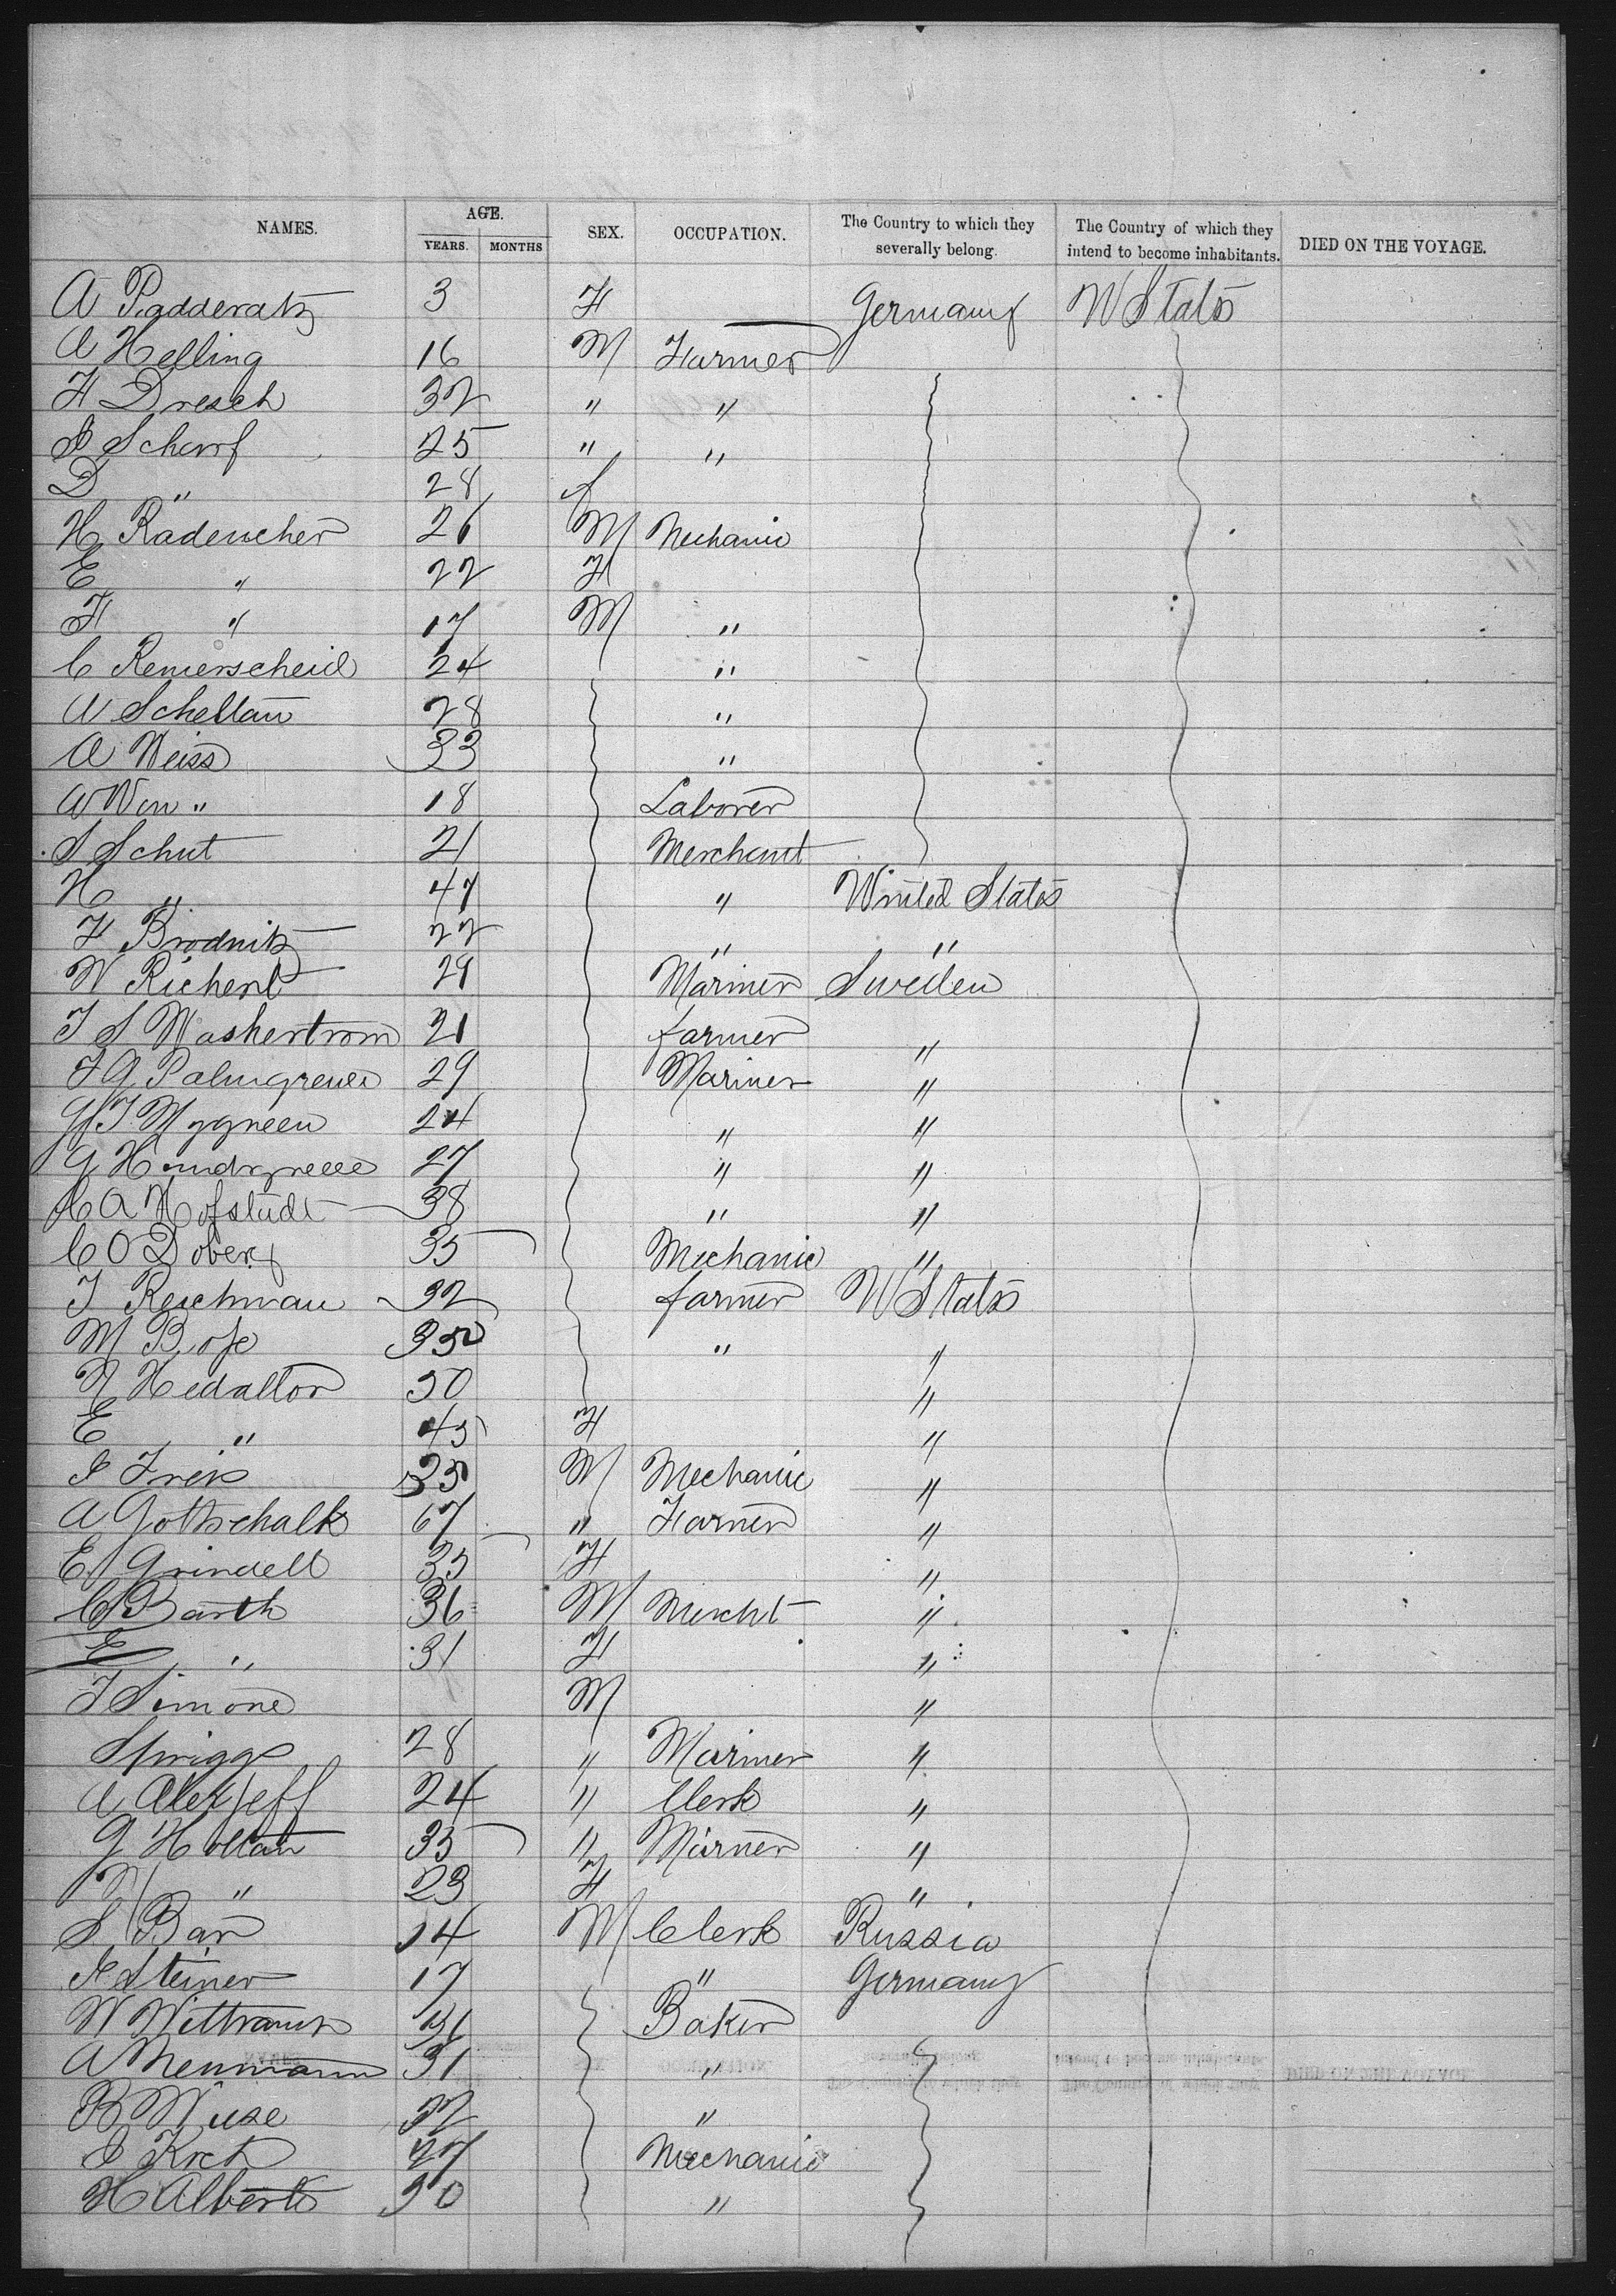 NAMES. AGE. YEARS. MONTHS SEX. OCCUPATION. The Country to which they severally belong. The Country of which they intend to become inhabitants. DIED ON THE VOYAGE.
A Padderatz 3 F Germany U States
A Helling 16 M Farmer
F Dresch 32 " "
S Scharf 25 " "
D " 28 f
H 26 M Mechanic
E " 22 F
F " 17 M "
C Remerscheid 24 "
A Scheltau 28 "
A Weiss 33 "
A Von " 18 Laborer
S Schut 21 Merchant
H " 47 " United States
F Brodnitz 22 " "
W Richert 29 Mariner Sweden
21 farmer "
F G Palmgreen 29 Mariner "
24 " "
27 " "
C A Hofstudt 38 " "
C O Doberg 35 Mechanic "
J Reichman 32 farmer U States
M 35 " "
N Hedaltor 50 "
E " 45 F "
35 M Mechanic "
A Gottschalk 67 " Farmer "
E Grindell 35 F "
C Barth 36 M Mercht "
E " 31 F "
J Simone M "
Spriggs 28 " Mariner "
A 24 " Clerk "
G Holtan 35 " Mariner "
N " 23 F "
S Bar 14 M Clerk Russia
Steiner 17 " Germany
W 31 Baker
A Neumann 31 "
B 32 "
27 Mechanic
H Alberts 30 "